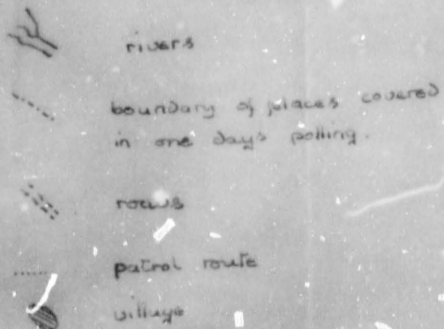 rivers
boundary of places covered
in one days polling.
roads
patrol route
village